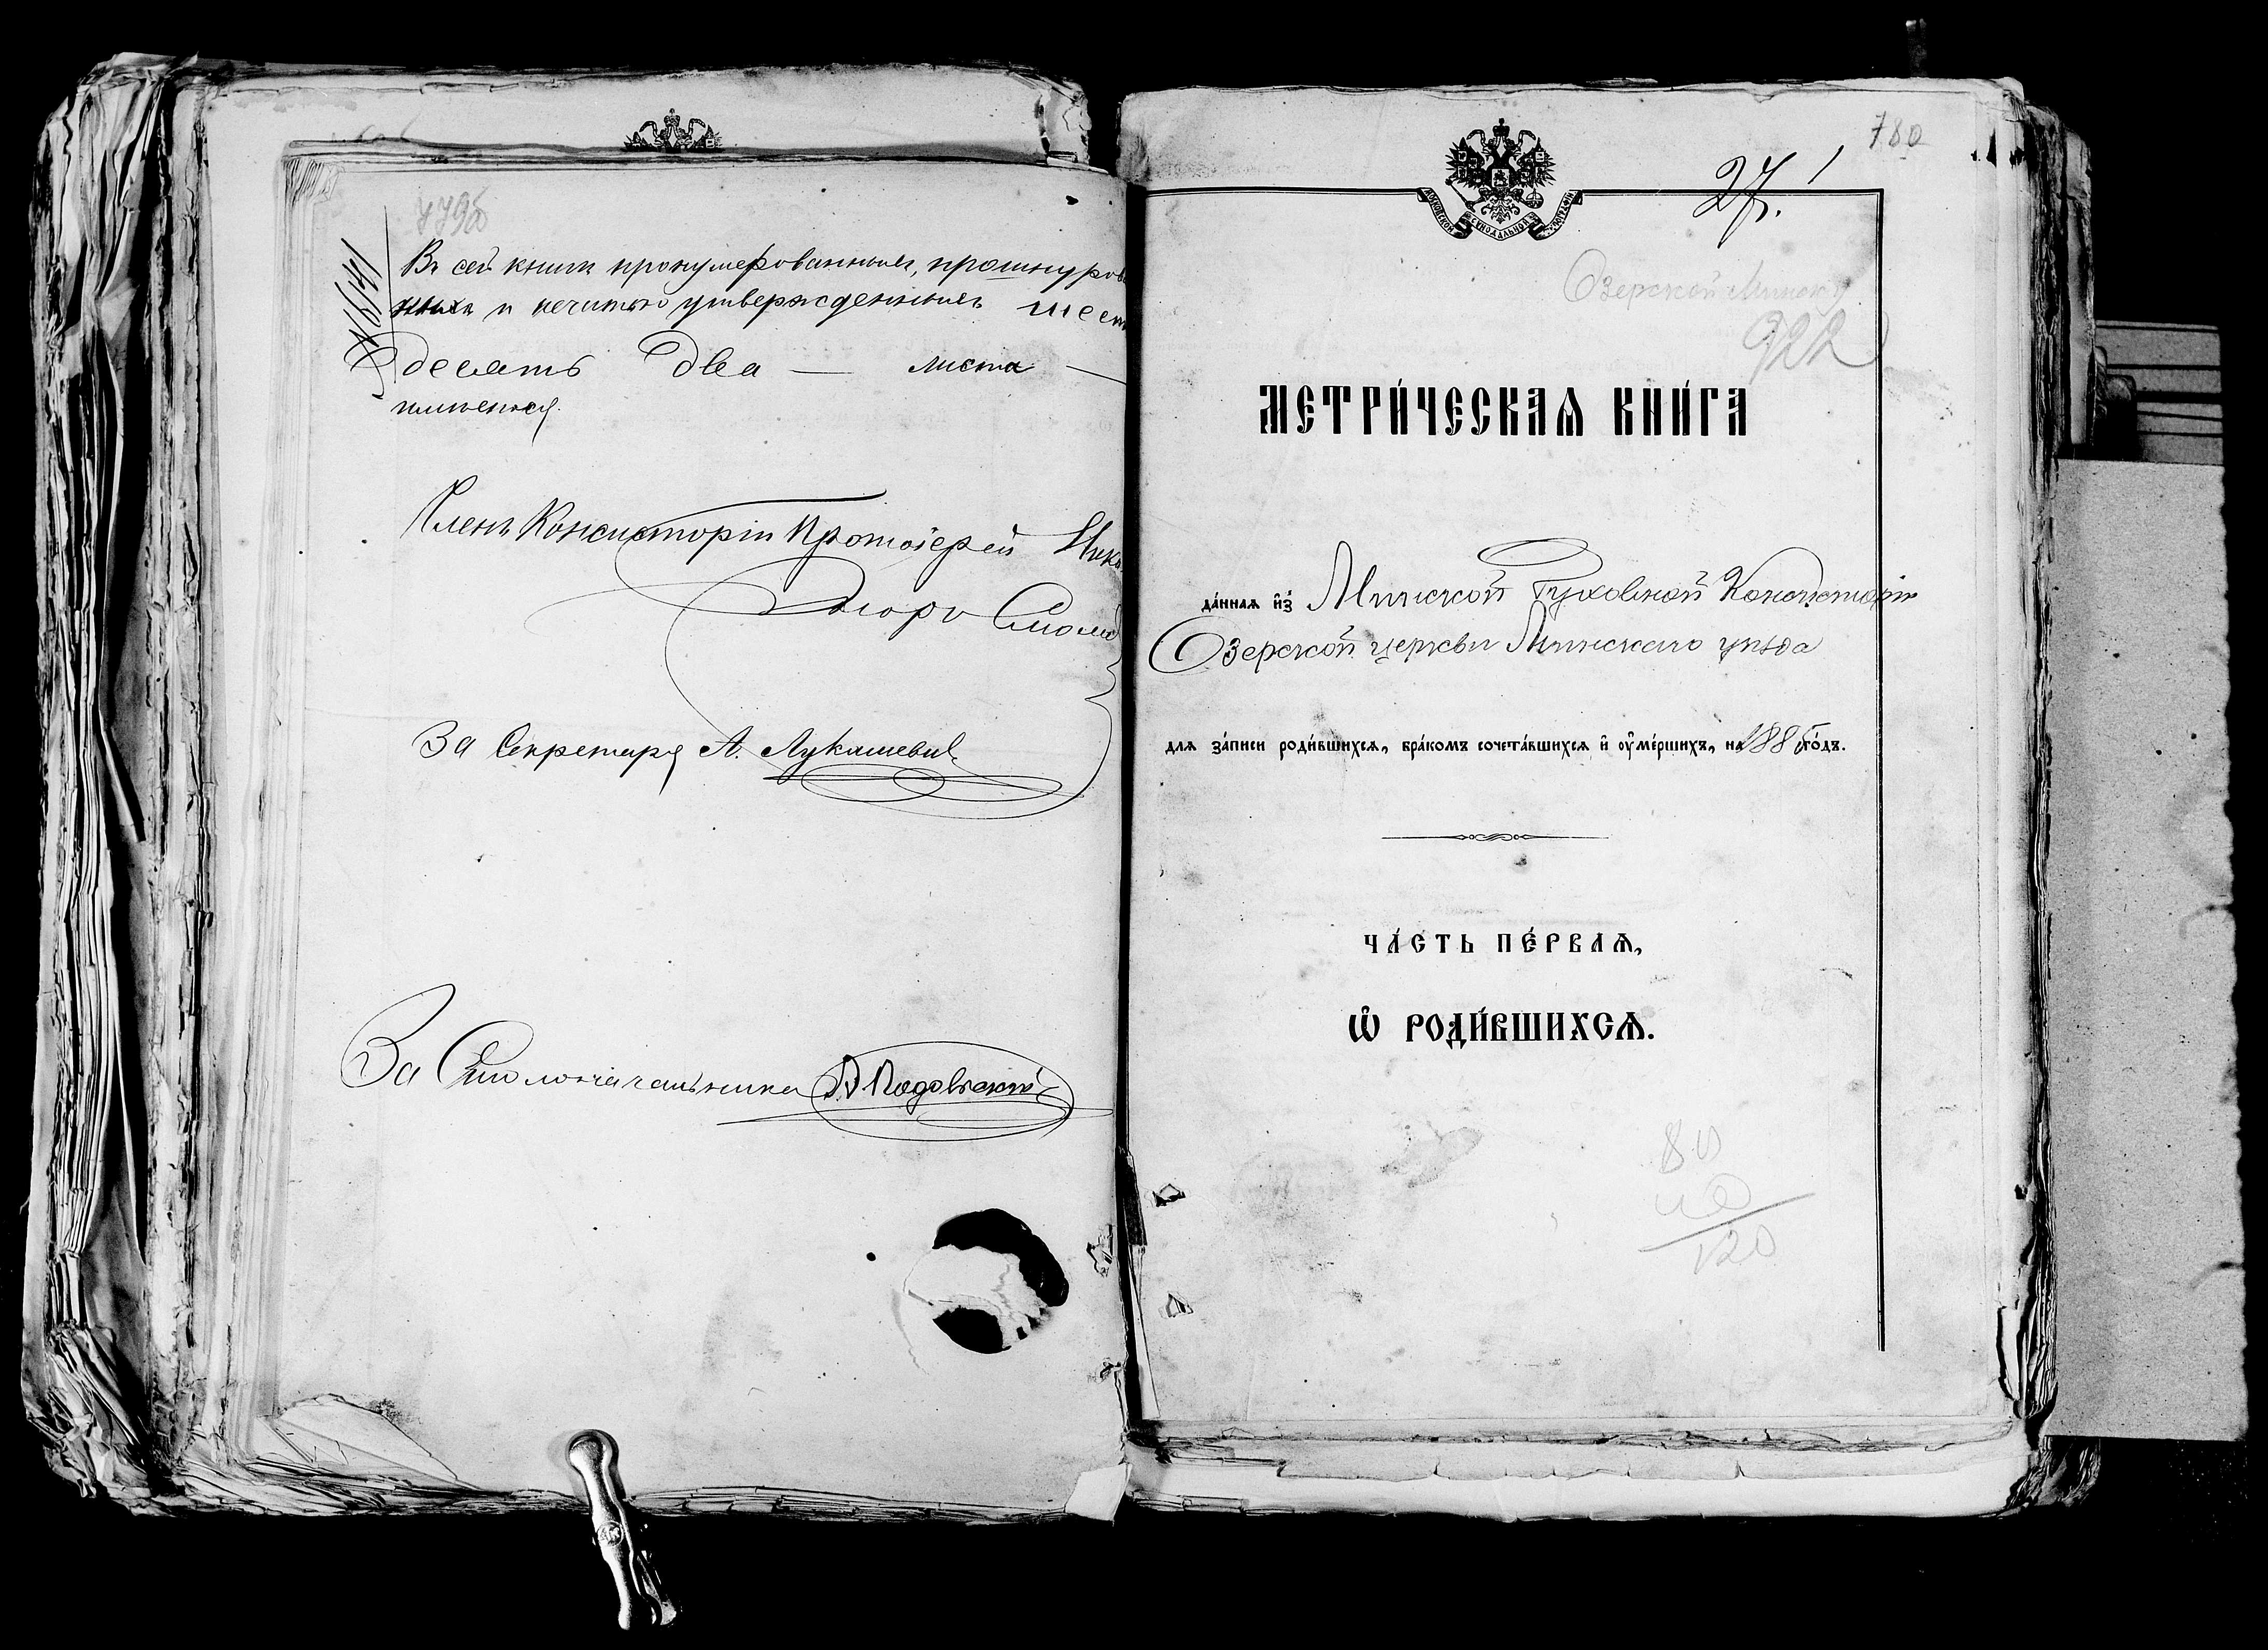 779б
Въ сей книгѣ пронумерованныхъ, прошнуров
ныхъ и печатью утвержденныхъ шест
десятъ два — листа —
имѣется.
Членъ Консисторіи Протоіерей Ник
За Секретаря А. Лукашевичъ
За Столоначальника
780
27. 1
МОСКОВСКОЙ СѴНОДАЛЬНОЙ ТИПОГРАФІИ
Озерской Минск у
922
МЕТРИ́ЧЕСКАѦ КНИ́ГА
да́нная и҆з̾ Минской Духовной Консисторіи
Озерской церкви Минскаго уѣзда
для за́писи роди́вшихся, бра́комъ сочета́вшихся и҆ оу҆ме́ршихъ, на 1885 го́дъ.
ЧА́СТЬ ПЕ́РВАѦ,
Ѡ҆ РОДИ́ВШИХСѦ.
80
40
120